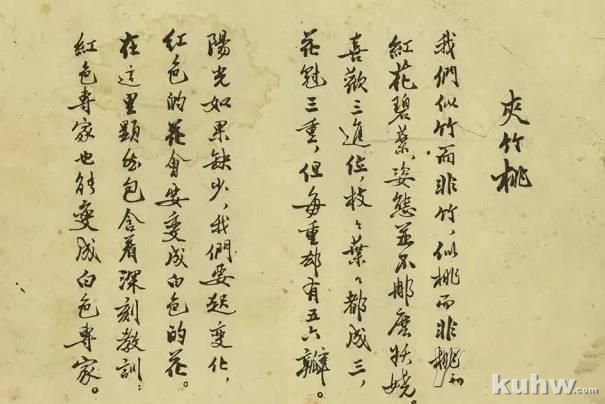 夾竹桃
我們似竹而非竹，似桃而非桃
紅花碧葉，姿態並不那麼妖嬈。
喜歡三進位，枝々葉々都成三，
花冠三重，但每重却有五六瓣。
陽光如果缺少，我們要起變化，
紅色的花會要變成白色的花。
在這里顯然包含着深刻教訓：
紅色專家也能變成白色專家。
kuhw.com